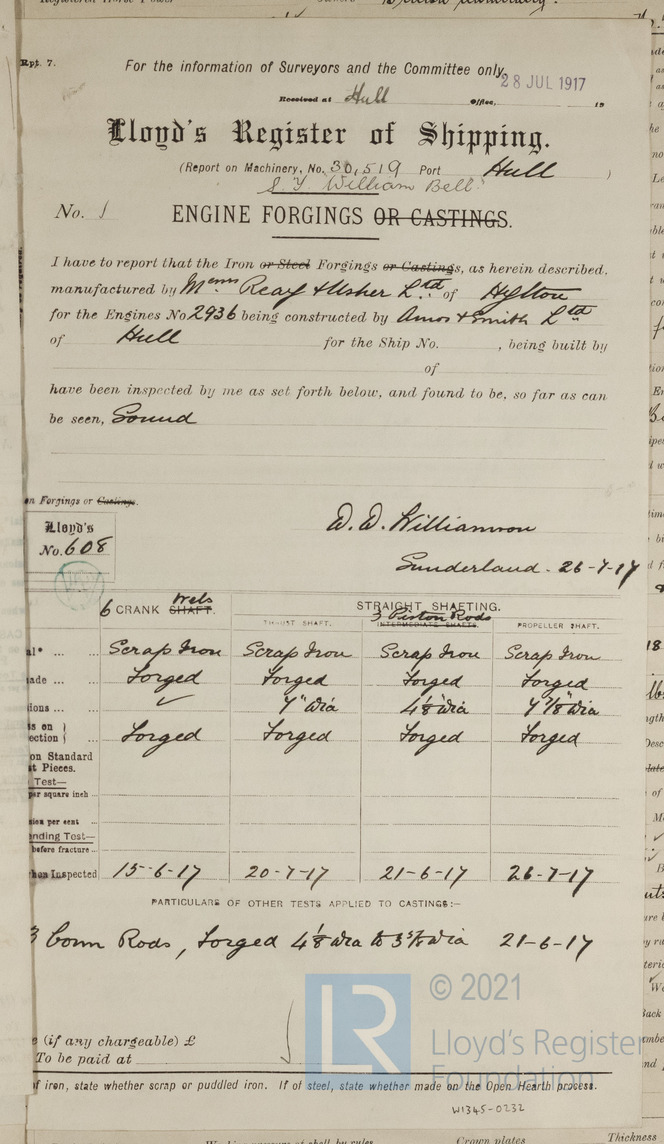 Rpt. 7.
For the information of Surveyors and the Committee only.
28 JUL 1917
Received at Hull Office, 19
Lloyd's Register of Shipping.
(Report on Machinery, No. 30,519 Port Hull )
S.Y. William Bell
No. 1 ENGINE FORGINGS OR CASTINGS.
I have to report that the Iron or Steel Forgings or Castings, as herein described.
manufactured by Messrs Reay & Usher Ltd of Hylton
for the Engines No 2936 being constructed by Amos & Smith Ltd
of Hull for the Ship No. , being built by
of
have been inspected by me as set forth below, and found to be, so far as can
be seen, Sound
en Forgings or Castings.
Lloyd's
No. 608
D. D. Williamson
Sunderland - 26-7-17
6 CRANK SHAFT. Webs
STRAIGHT SHAFTING.
THRUST SHAFT. 3 Piston Rods INTERMEDIATE SHAFTS. PROPELLER SHAFT.
al* ... ... Scrap Iron Scrap Iron Scrap Iron Scrap Iron
ade ... Forged Forged Forged Forged
ions ... ... ✓ 7" dia 4 1/8 dia 7 7/8" dia
s on }
ection } ... Forged Forged Forged Forged
on Standard
t Pieces.
Test—
per square inch ...
sion per cent ...
nding Test—
before fracture ...
hen Inspected 15-6-17 20-7-17 21-6-17 26-7-17
PARTICULARS OF OTHER TESTS APPLIED TO CASTINGS:—
3 Conn Rods, Forged 4 1/8 dia to 3 5/8 dia 21-6-17
e (if any chargeable) £
To be paid at
If iron, state whether scrap or puddled iron. If of steel, state whether made on the Open Hearth process.
W1345-0232
LR
© 2021
Lloyd's Register
Foundation
Crown plates
Thickness